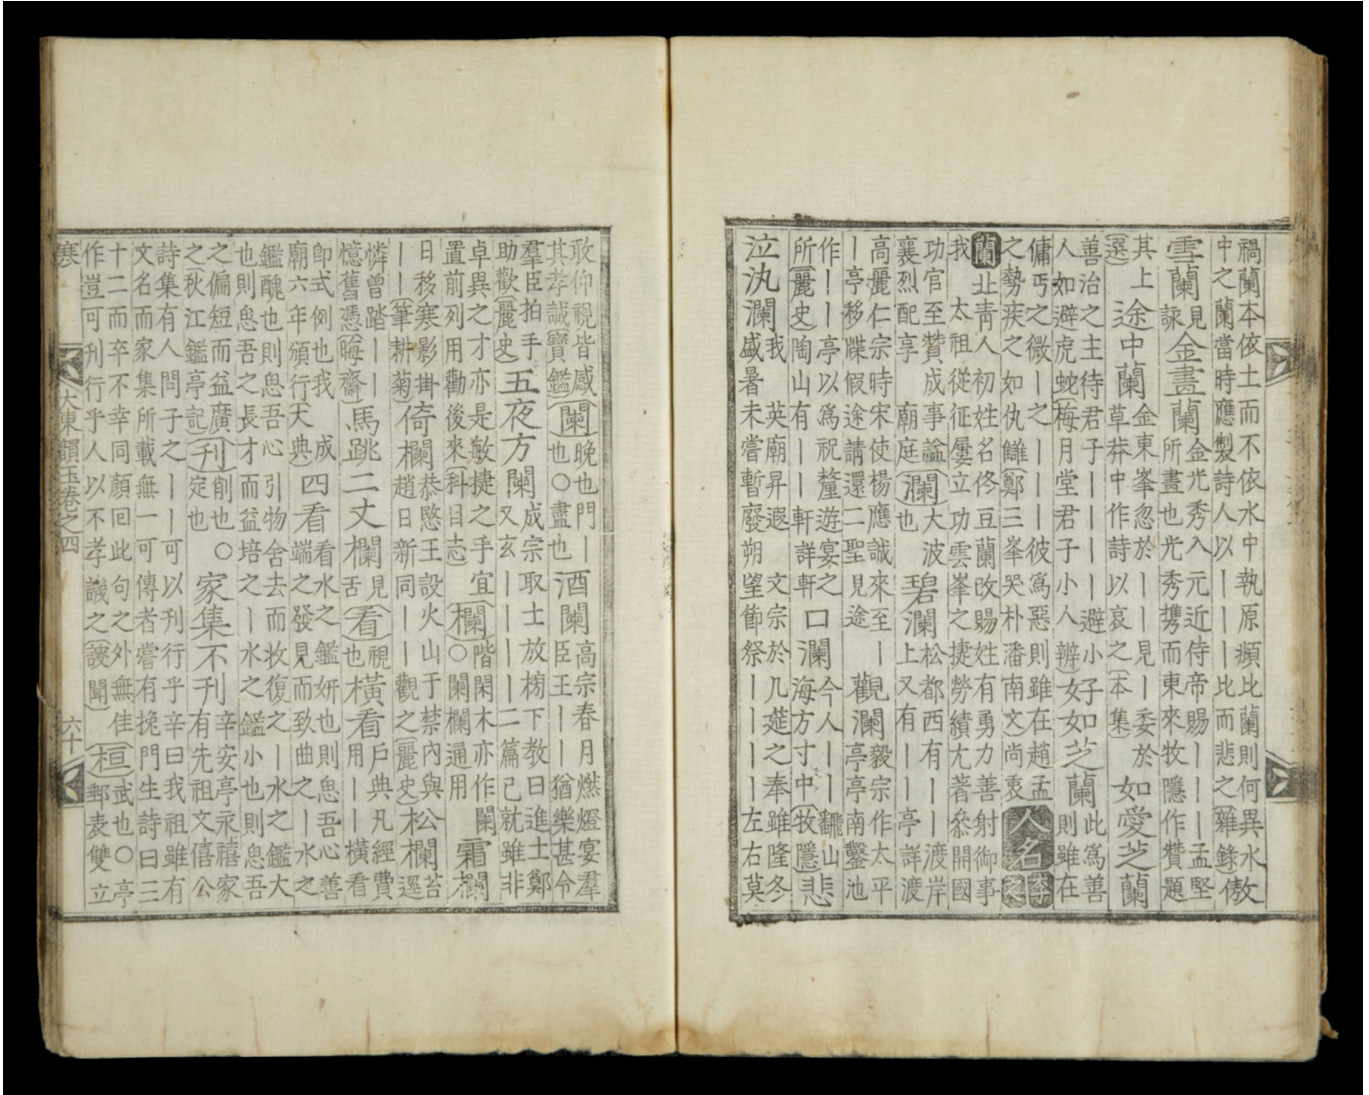 禍蘭本依土而不依水中執原頻比蘭則何異水中之蘭當時應製詩人以丨丨丨比而悲之(雜錄)傲
雪蘭見詠金畫蘭金光秀入元近侍帝賜丨丨丨孟堅所畫也光秀携而東來牧隱作贊題
其上(選)途中蘭金東峯忽於丨丨見丨委於草莽中作詩以哀之(本集)如愛芝蘭
善治之主待君子丨丨丨丨避小人如避虎蛇(梅月堂君子小人辨)好如芝蘭此爲善則雖在
傭丐之微丨之丨丨丨彼爲惡則雖在趙孟之勢疾之如仇讎(鄭三峯哭朴潘南文)尚褧 人名 李之
蘭北青人初姓名佟豆蘭改賜姓有勇力善射御事我 太祖從征屢立功雲峯之捷勞績尤著叅開國
功官至贊成事謚襄烈配享 廟庭(瀾)大波也碧瀾松都西有丨丨渡岸上又有丨丨亭詳渡
高麗仁宗時宋使楊應誠來至丨丨亭移牒假途請還二聖見途觀瀾亭毅宗作太平亭亭南鑿池
作丨丨亭以爲祝釐遊宴之所(麗史)陶山有丨丨軒詳軒口瀾今人丨丨飜山海方寸中(牧隱)悲
泣汍瀾我 英廟昇遐 文宗於几筵之奉雖隆冬盛暑未嘗暫廢朔望節祭丨丨丨丨左右莫
敢仰視皆感其孝誠(寶鑑)(闌)晩也門丨也○盡也酒闌高宗春月燃燈宴羣臣王丨丨猶樂甚令
羣臣拍手助歡(麗史)五夜方闌成宗取士放榜下教曰進士鄭又玄丨丨丨丨二篇已就雖非
卓異之才亦是敏捷之手宜置前列用勸後來(科目志)(欄)階閑木亦作闌○闌欄通用霜欄
日移寒影掛丨丨(筆耕菊)倚欄恭愍王設火山于禁內與公趙日新同丨丨觀之(麗史)松欄苔逕
憐曾踏丨丨憶舊憑(晦齋)馬跳二丈欄見舌(看)視也橫看戶典凡經費用丨丨橫看
卽式例也我 成廟六年頒行(大典)四看看水之鑑妍也則思吾心善端之發見而致曲之丨水之
鑑醜也則思吾心引物舍去而收復之丨水之鑑大也則思吾之長才而益培之丨水之鑑小也則思吾
之偏短而益廣之(秋江鑑亭記)(刊)削也○定也家集不刊辛安亭永禧家有先祖文僖公
詩集有人問子之丨丨可以刊行乎辛曰我祖雖有文名而家集所載無一可傳者嘗有挽門生詩曰三
十二而卒不幸同顏回此句之外無佳作豈可刊行乎人以不孝譏之(謏聞)(桓)武也○亭郵表雙立
寒 大東韻玉卷之四 六十